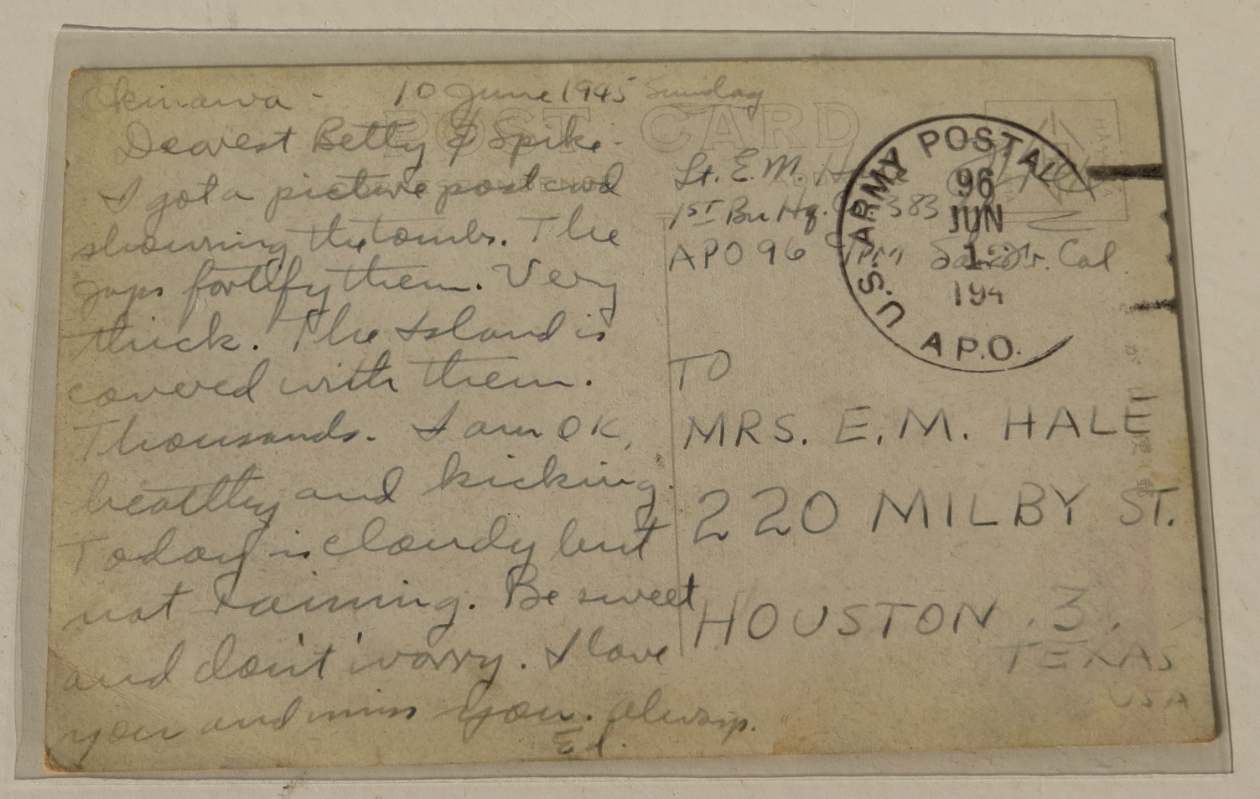 Okinawa - 10 June 1945 Sunday
Dearest Betty & Spike.
I got a picture post card
showing the tombs. The
Japs fortify them. Very
thick. The Island is
covered with them.
Thousands. I am OK,
healthy and kicking.
Today is cloudy but
not raining. Be sweet
and don't worry. I love
you and miss you. Always.
Ed.
POST CARD
Lt. E.M.
1st Bn Hq. 383
APO 96 Cal.
U.S. ARMY POSTAL
96
JUN
1
194
A.P.O.
TO
MRS. E.M. HALE
220 MILBY ST.
HOUSTON . 3.
TEXAS
USA